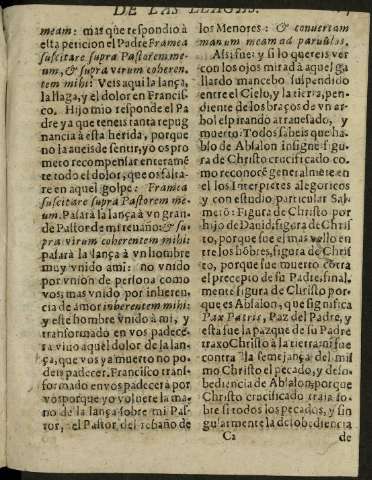 DE LAS LLAGAS.
meam: mas què respondiò à
esta peticion el Padre Framea
suscitare supra Pastorem me-
um, & supra virum coheren-
tem mihi: Veis aqui la lança,
la llaga, y el dolor en Francis-
co. Hijo mio responde el Pa
dre ya que teneis tanta repug
nancia à esta herida, porque
no la aueis de sentir, yo os pro
meto recompensar enteramẽ
te todo el dolor, que os falta-
re en aquel golpe: Framea
suscitare supra Pastorem me-
um. Pasarà la lança à vn gran-
de Pastor de mi reuaño: & su-
pra virum coherentem mihi:
pasarà la lança à vn hombre
muy vnido ami: no vnido
por vnion de persona como
vos; mas vnido por inheren-
cia de amor inherentem mihi:
y este hombre vnido à mi, y
transformado en vos padece-
ra vivo aquel dolor de la lan-
ça, que vos ya muerto no po-
deis padecer. Francisco trans-
formado en vos padecerà por
vos porque yo voluere la ma-
no de la lança sobre mi Pas-
tor, el Pastor del rebaño de
los Menores: & convertam
manum meam ad parvulos.
Asi fue: y si lo quereis ver
con los ojos mirad à aquel ga
llardo mancebo suspendido
entre el Cielo, y la tierra, pen-
diente de los braços de vn ar-
bol espirando atrauesado, y
muerto: Todos sabeis que ha-
blo de Absalon insigne figu-
ra de Christo crucificado co-
mo reconocẽ generalmẽte en
el los Interpretes alegoricos
y con estudio particular Sal-
meró: Figura de Christo por
hijo de Dauid; figura de Chris
to, porque fue el mas vello en
tre los hõbres, figura de Chris
to, porque fue muerto contra
el precepto de su Padre; final-
mente figura de Christo por-
que es Absalon, que significa
Pax Patris, Paz del Padre, y
esta fue la paz que de su Padre
traxo Christo à la tierra: ni fue
contra la semejança del mis
mo Christo el pecado, y deso-
bediencia de Absalon, porque
Christo crucificado traia so-
bre si todos los pecados, y sin
gularmente la desobediencia
C2
de